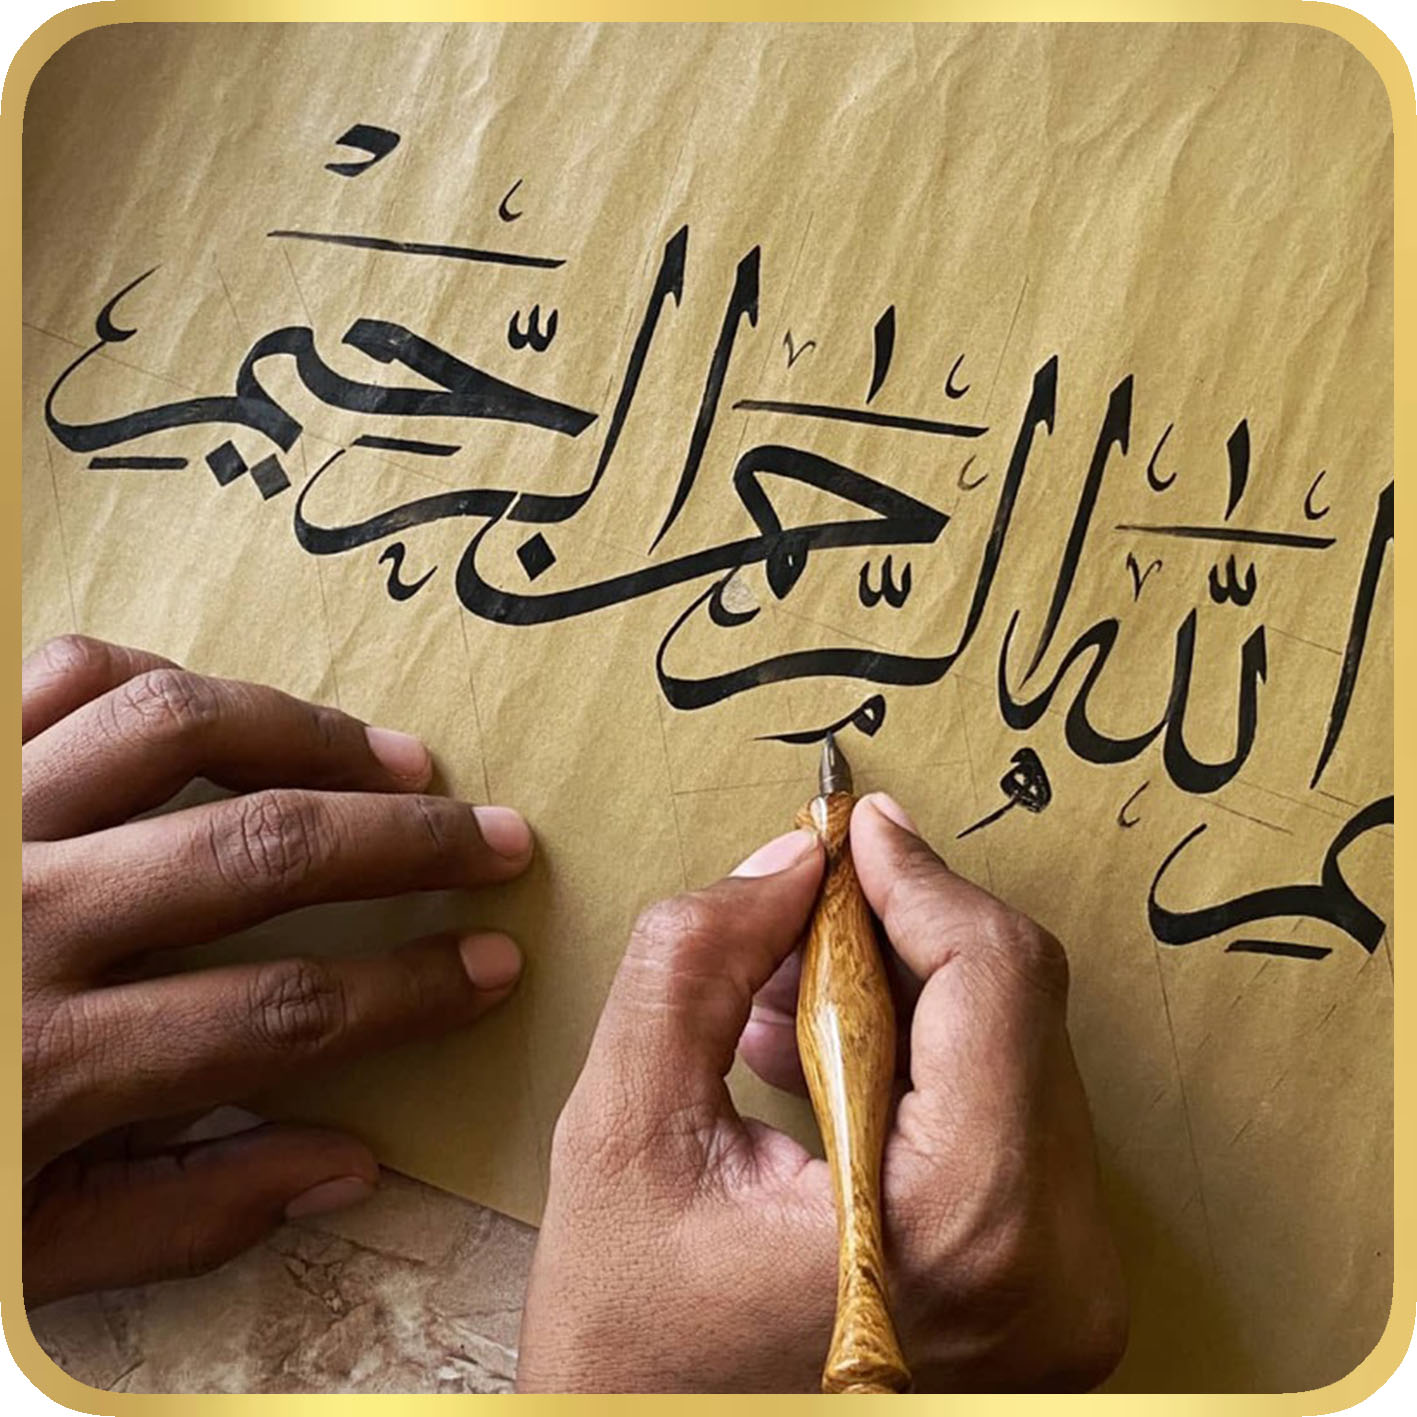 الله الرَّحمٰن الرَّحِيمِ